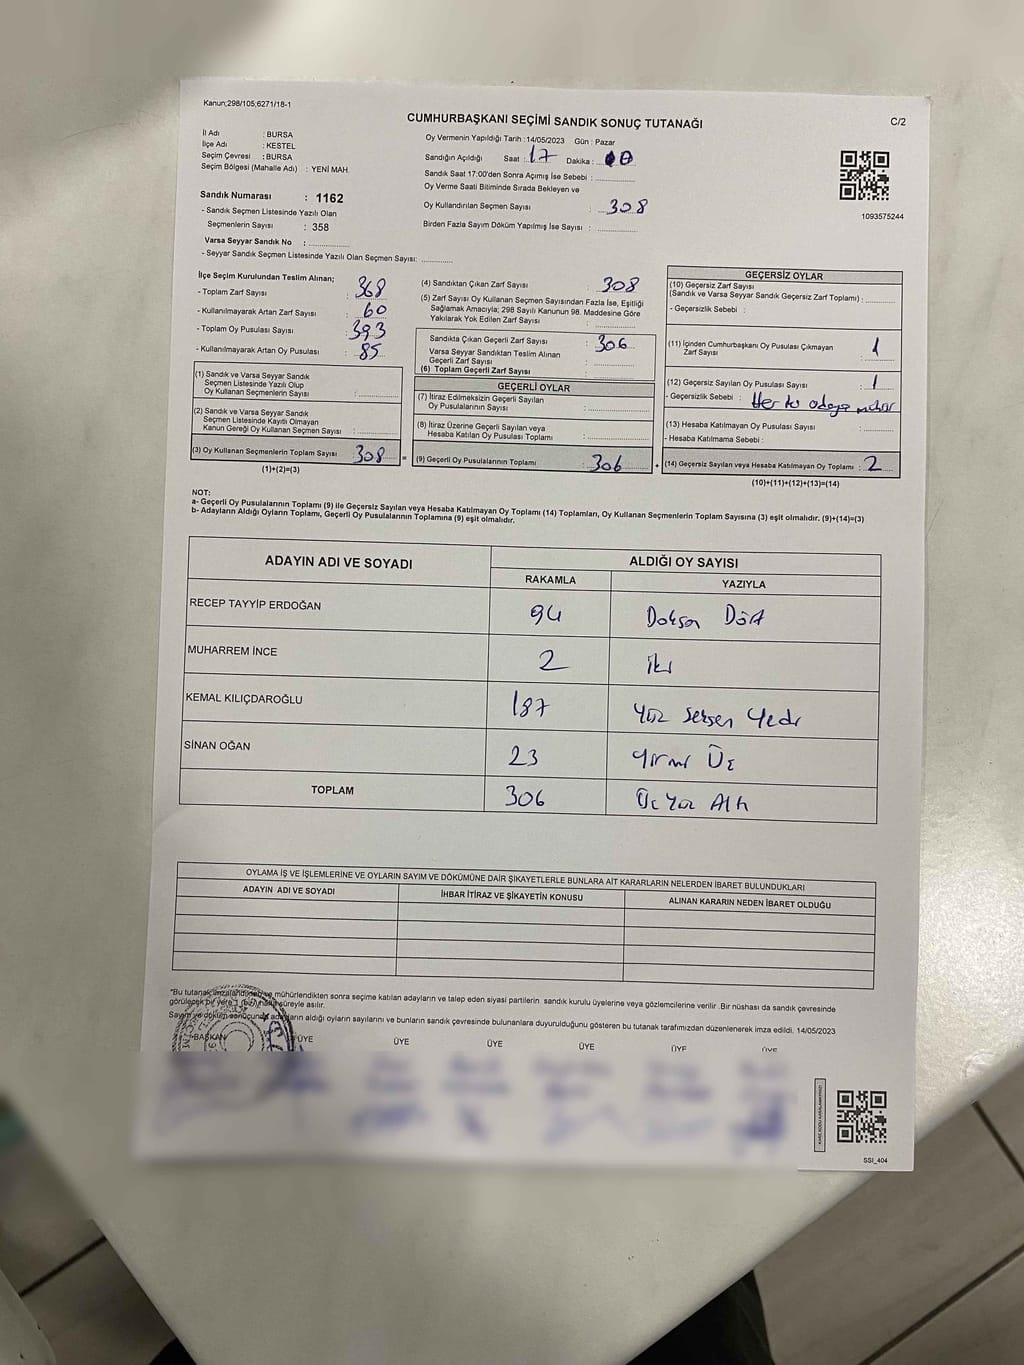 Kanun;298/105;6271/18-1
CUMHURBAŞKANI SEÇİMİ SANDIK SONUÇ TUTANAĞI
C/2
İl Adı : BURSA
İlçe Adı : KESTEL
Seçim Çevresi : BURSA
Seçim Bölgesi (Mahalle Adı) : YENİ MAH.
Sandık Numarası : 1162
- Sandık Seçmen Listesinde Yazılı Olan
Seçmenlerin Sayısı : 358
Varsa Seyyar Sandık No : ..............
- Seyyar Sandık Seçmen Listesinde Yazılı Olan Seçmen Sayısı: ...........
Oy Vermenin Yapıldığı Tarih :14/05/2023 Gün : Pazar
Sandığın Açıldığı Saat : 17 Dakika :
Sandık Saat 17:00'den Sonra Açımış İse Sebebi : ..............
Oy Verme Saati Bitiminde Sırada Bekleyen ve
Oy Kullandırılan Seçmen Sayısı : 308
Birden Fazla Sayım Döküm Yapılmış İse Sayısı : ..............
1093575244
İlçe Seçim Kurulundan Teslim Alınan;
- Toplam Zarf Sayısı : 368
- Kullanılmayarak Artan Zarf Sayısı : 60
- Toplam Oy Pusulası Sayısı : 393
- Kullanılmayarak Artan Oy Pusulası : 85
(1) Sandık ve Varsa Seyyar Sandık
Seçmen Listesinde Yazılı Olup
Oy Kullanan Seçmenlerin Sayısı :
(2) Sandık ve Varsa Seyyar Sandık
Seçmen Listesinde Kayıtlı Olmayan
Kanun Gereği Oy Kullanan Seçmen Sayısı :
(3) Oy Kullanan Seçmenlerin Toplam Sayısı : 308 =
(1)+(2)=(3)
(4) Sandıktan Çıkan Zarf Sayısı : 308
(5) Zarf Sayısı Oy Kullanan Seçmen Sayısından Fazla İse, Eşitliği
Sağlamak Amacıyla; 298 Sayılı Kanunun 98. Maddesine Göre
Yakılarak Yok Edilen Zarf Sayısı :
Sandıkta Çıkan Geçerli Zarf Sayısı : 306
Varsa Seyyar Sandıktan Teslim Alınan
Geçerli Zarf Sayısı :
(6) Toplam Geçerli Zarf Sayısı :
GEÇERLİ OYLAR
(7) İtiraz Edilmeksizin Geçerli Sayılan
Oy Pusulalarının Sayısı :
(8) İtiraz Üzerine Geçerli Sayılan veya
Hesaba Katılan Oy Pusulası Toplamı :
(9) Geçerli Oy Pusulalarının Toplamı : 306 +
GEÇERSİZ OYLAR
(10) Geçersiz Zarf Sayısı
(Sandık ve Varsa Seyyar Sandık Geçersiz Zarf Toplamı) :
- Geçersizlik Sebebi :
(11) İçinden Cumhurbaşkanı Oy Pusulası Çıkmayan
Zarf Sayısı : 1
(12) Geçersiz Sayılan Oy Pusulası Sayısı : 1
- Geçersizlik Sebebi : Her iki adaya mühür
(13) Hesaba Katılmayan Oy Pusulası Sayısı :
- Hesaba Katılmama Sebebi :
(14) Geçersiz Sayılan veya Hesaba Katılmayan Oy Toplamı : 2
(10)+(11)+(12)+(13)=(14)
NOT:
a- Geçerli Oy Pusulalarının Toplamı (9) ile Geçersiz Sayılan veya Hesaba Katılmayan Oy Toplamı (14) Toplamları, Oy Kullanan Seçmenlerin Toplam Sayısına (3) eşit olmalıdır. (9)+(14)=(3)
b- Adayların Aldığı Oyların Toplamı, Geçerli Oy Pusulalarının Toplamına (9) eşit olmalıdır.
ADAYIN ADI VE SOYADI
ALDIĞI OY SAYISI
RAKAMLA YAZIYLA
RECEP TAYYİP ERDOĞAN 94 Doksan Dört
MUHARREM İNCE 2 iki
KEMAL KILIÇDAROĞLU 187 Yüz Seksen Yedi
SİNAN OĞAN 23 Yirmi Üç
TOPLAM 306 Üç Yüz Altı
OYLAMA İŞ VE İŞLEMLERİNE VE OYLARIN SAYIM VE DÖKÜMÜNE DAİR ŞİKAYETLERLE BUNLARA AİT KARARLARIN NELERDEN İBARET BULUNDUKLARI
ADAYIN ADI VE SOYADI İHBAR İTİRAZ VE ŞİKAYETİN KONUSU ALINAN KARARIN NEDEN İBARET OLDUĞU
"Bu tutanak imzalandıktan ve mühürlendikten sonra seçime katılan adayların ve talep eden siyasi partilerin sandık kurulu üyelerine veya gözlemcilerine verilir. Bir nüshası da sandık çevresinde
görülecek bir yere 1 (bir) hafta süreyle asılır.
Sayım ve döküm sonucunda adayların aldığı oyların sayılarını ve bunların sandık çevresinde bulunanlara duyurulduğunu gösteren bu tutanak tarafımızdan düzenlenerek imza edildi. 14/05/2023
BAŞKAN ÜYE ÜYE ÜYE ÜYE ÜYE ÜYE
SSI_404